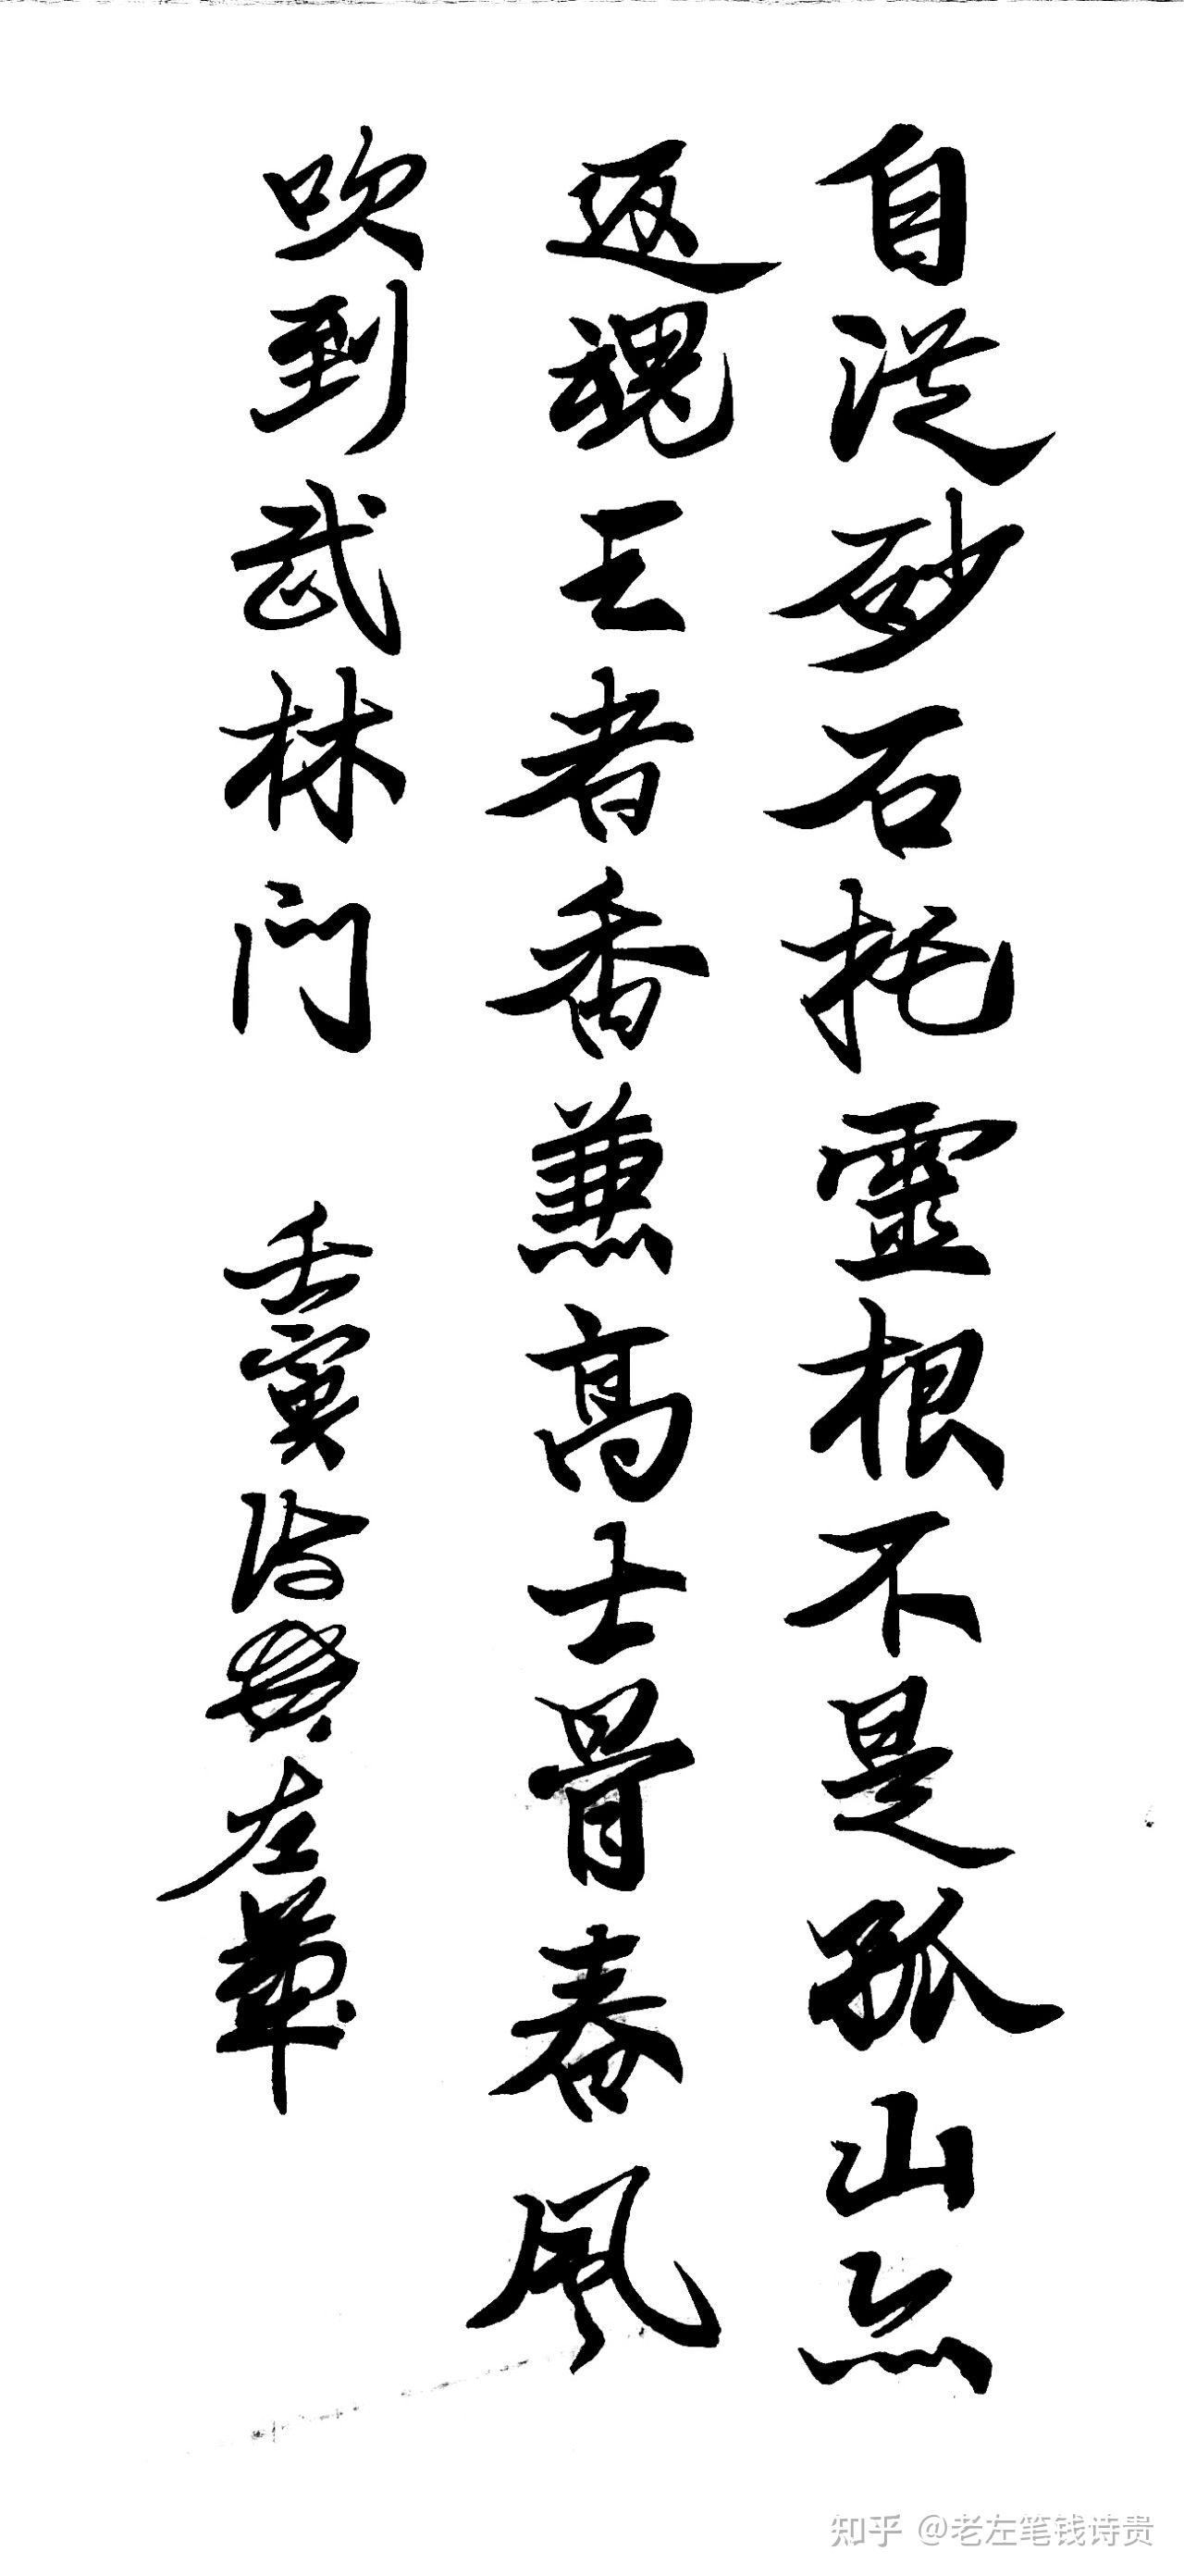 自從砂石托靈根不是孤山亦
返魂王者香兼高士骨春風
吹到武林门 壬寅治印左華
知乎 @老左笔钱诗贵